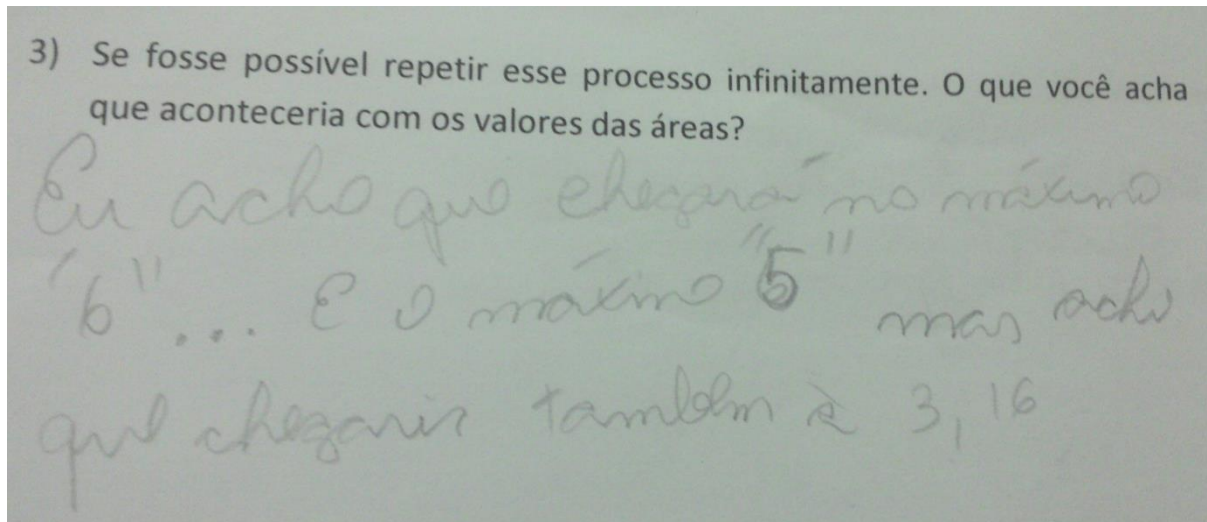 3) Se fosse possível repetir esse processo infinitamente. O que você acha
que aconteceria com os valores das áreas?
Eu acho que chegará no máximo
"6"... e o máximo "5" mas acho
que chegaria também à 3,16